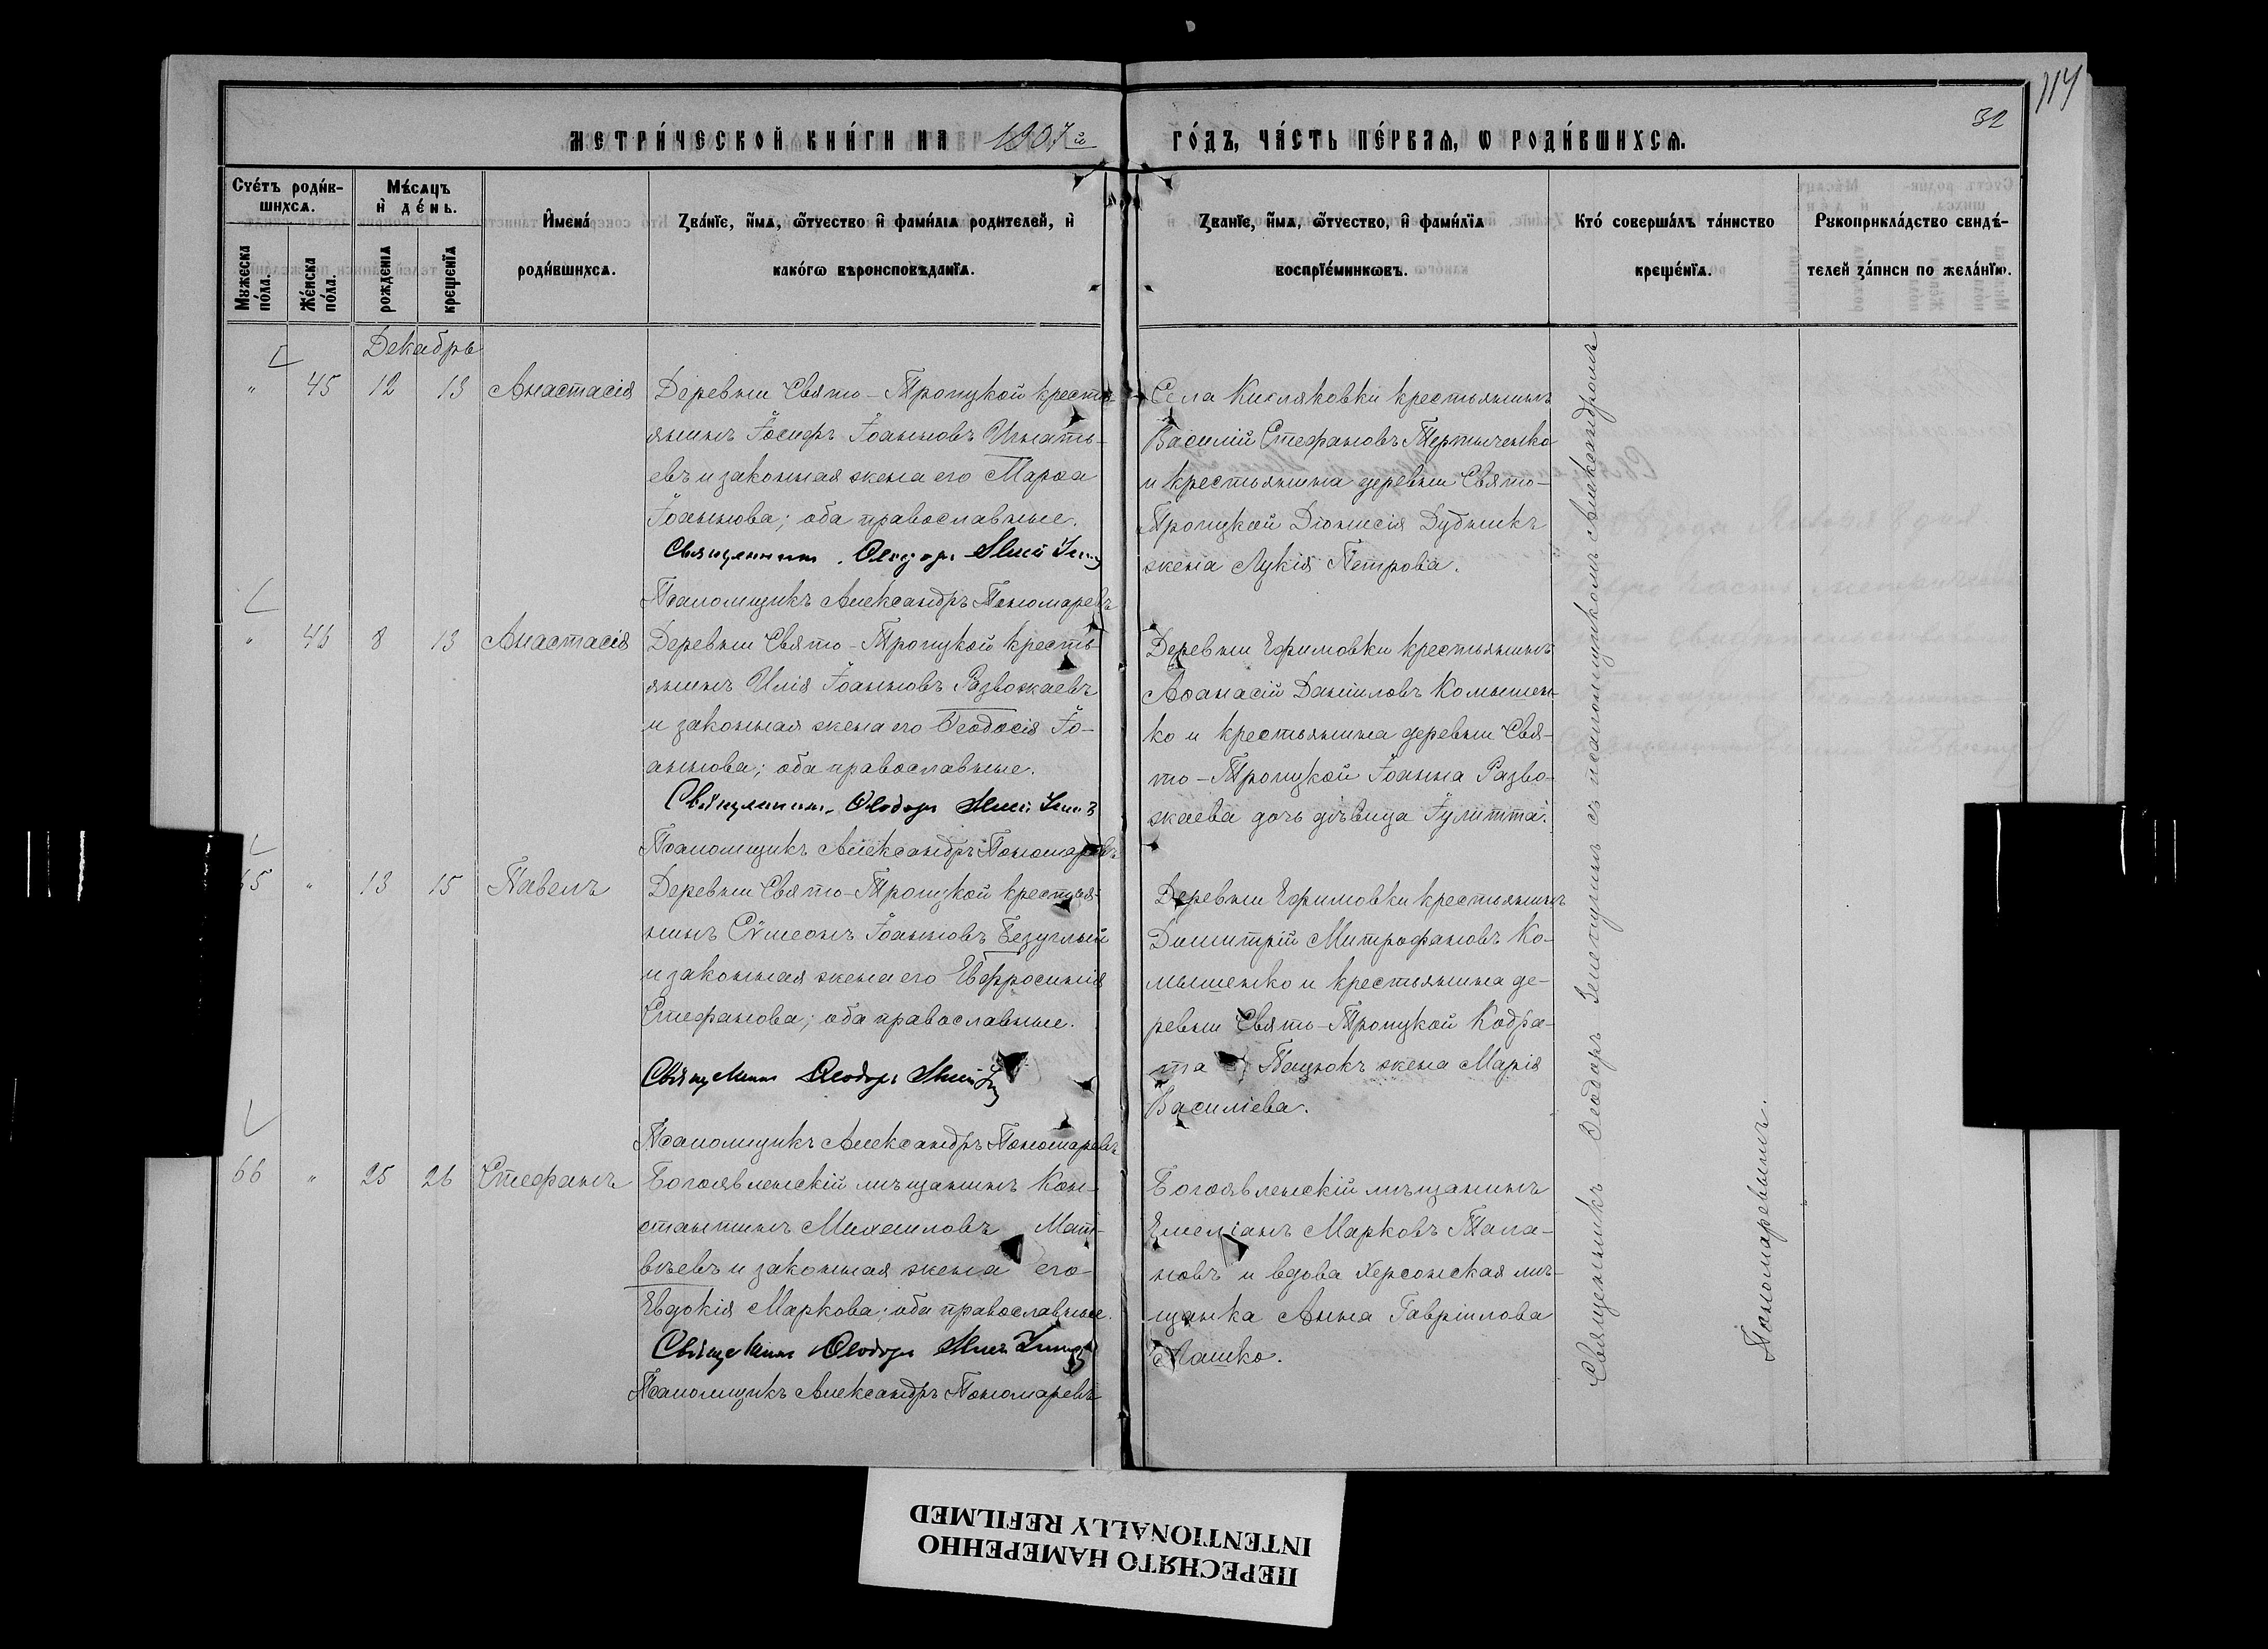 114
32
МЕТРИ́ЧЕСКОЙ КНИ́ГИ НА 1907й ГО́ДЪ, ЧА́СТЬ ПЕ́РВАѦ, Ѡ РОДИ́ВШИХСѦ.
Счє́тъ роди́в-
шихсѧ.
Мꙋжеска по́ла.
Же́нска по́ла.
Мѣ́сѧцъ
и҆ де́нь.
рожденїѧ
крещенїѧ
И҆мена́
роди́вшихсѧ.
Ꙁва́нїе, и҆́мѧ, ѻ҆́тчество и҆ фамі́лїа родителей, и҆
како́гѡ вѣроисповѣданїѧ.
Ꙁванїе, и҆́мѧ, ѻ҆́тчество, и҆ фамі́лїѧ
воспрїе́мникѡвъ.
Кто́ соверша́лъ та́инство
креще́нїѧ.
Рꙋкоприкла́дство свидѣ́-
телей ꙁа́писи по жела́нїю.
Декабрь
" 45 12 13 Анастасія
Деревни Свято-Троицкой кресть-
янинъ Іосифъ Іоанновъ Игнать-
евъ и законная жена его Марѳа
Іоаннова; оба православные.
Священникъ Ѳеодоръ
Псаломщикъ Александръ Пономаревъ
Села Кисляковки крестьянинъ
Василій Стефановъ Тертыченко
и крестьянина деревни Свято-
Троицкой Діонисія Дубникъ
жена Лукія Петрова.
" 46 8 13 Анастасія
Деревни Свято-Троицкой кресть-
янинъ Илія Іоанновъ Развожаевъ
и законная жена его Ѳеодосія Іо-
аннова; оба православные.
Священникъ Ѳеодоръ
Псаломщикъ Александръ Пономаревъ
Деревни Ефимовки крестьянинъ
Аѳанасій Даніиловъ Комышен-
ко и крестьянина деревни Свя-
то-Троицкой Іоанна Разво-
жаева дочь дѣвица Іулитта.
65 " 13 15 Павелъ
Деревни Свято-Троицкой крестья-
нинъ Сѵмеонъ Іоанновъ Безуглый
и законная жена его Евфросинія
Стефанова; оба православные.
Священникъ Ѳеодоръ
Псаломщикъ Александръ Пономаревъ
Деревни Ефимовки крестьянинъ
Димитрій Митрофановъ Ко-
мышенко и крестьянина де-
ревни Свято-Троицкой Кодра-
та Пацюкъ жена Марія
Василіева.
66 " 25 26 Стефанъ
Богоявленскій мѣщанинъ Кон-
стантинъ Михаиловъ Мат-
вѣевъ и законная жена его
Евдокія Маркова; оба православные.
Священникъ Ѳеодоръ
Псаломщикъ Александръ Пономаревъ
Богоявленскій мѣщанинъ
Емеліанъ Марковъ Тала-
новъ и вдова Херсонская мѣ-
щанка Анна Гавріилова
Лашко.
Священникъ Ѳеодоръ съ псаломщикомъ Александромъ
Пономаревымъ.
ПЕРЕСНЯТО НАМЕРЕННО
INTENTIONALLY REFILMED